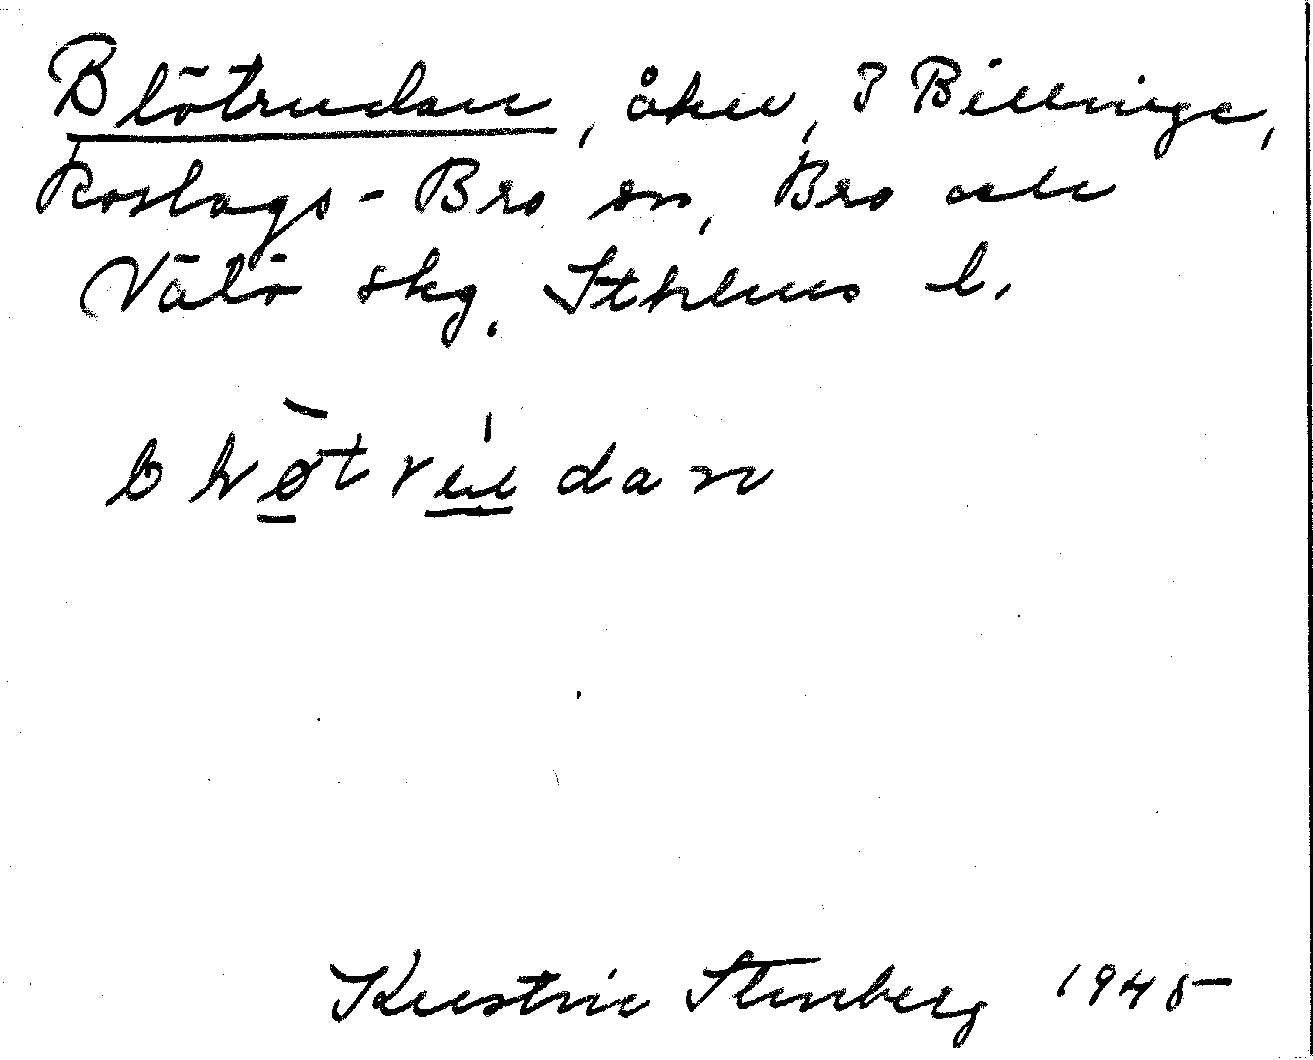 Blötrudan, åker, 3 Billinge,
Roslags-Bro sn, Bro och
Vätö skg. Sthlms l.
Kerstin Stenberg 1945